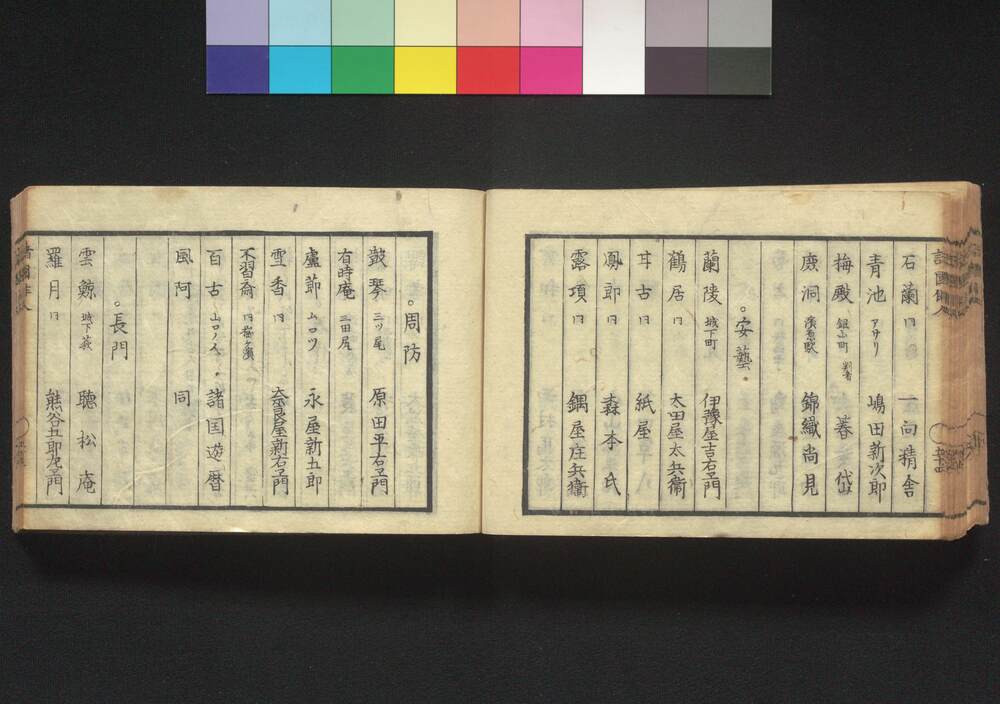 石蘭 同 一向精舎
青池 アサリ 嶋田新次郎
梅殿 銀山町 春岱
鹿洞 濱田駅 錦織尚見
○安藝
蘭陵 城下町 伊豫屋吉右衛門
鶴居 同 太田屋太兵衛
耳古 同 紙屋
鳳郎 同 森本氏
露頂 同 鍋屋庄兵衛
○周防
鼓琴 三ツ尾 原田平右衛門
有時庵 三田尻
盧節 ムロツ 永屋新五郎
雪香 同 奈良屋新右衛門
不習斎 同
百古 山口ノ人 諸国遊暦
風阿 同
○長門
雲鯨 城下萩 聴松庵
羅月 同 熊谷五郎左衛門